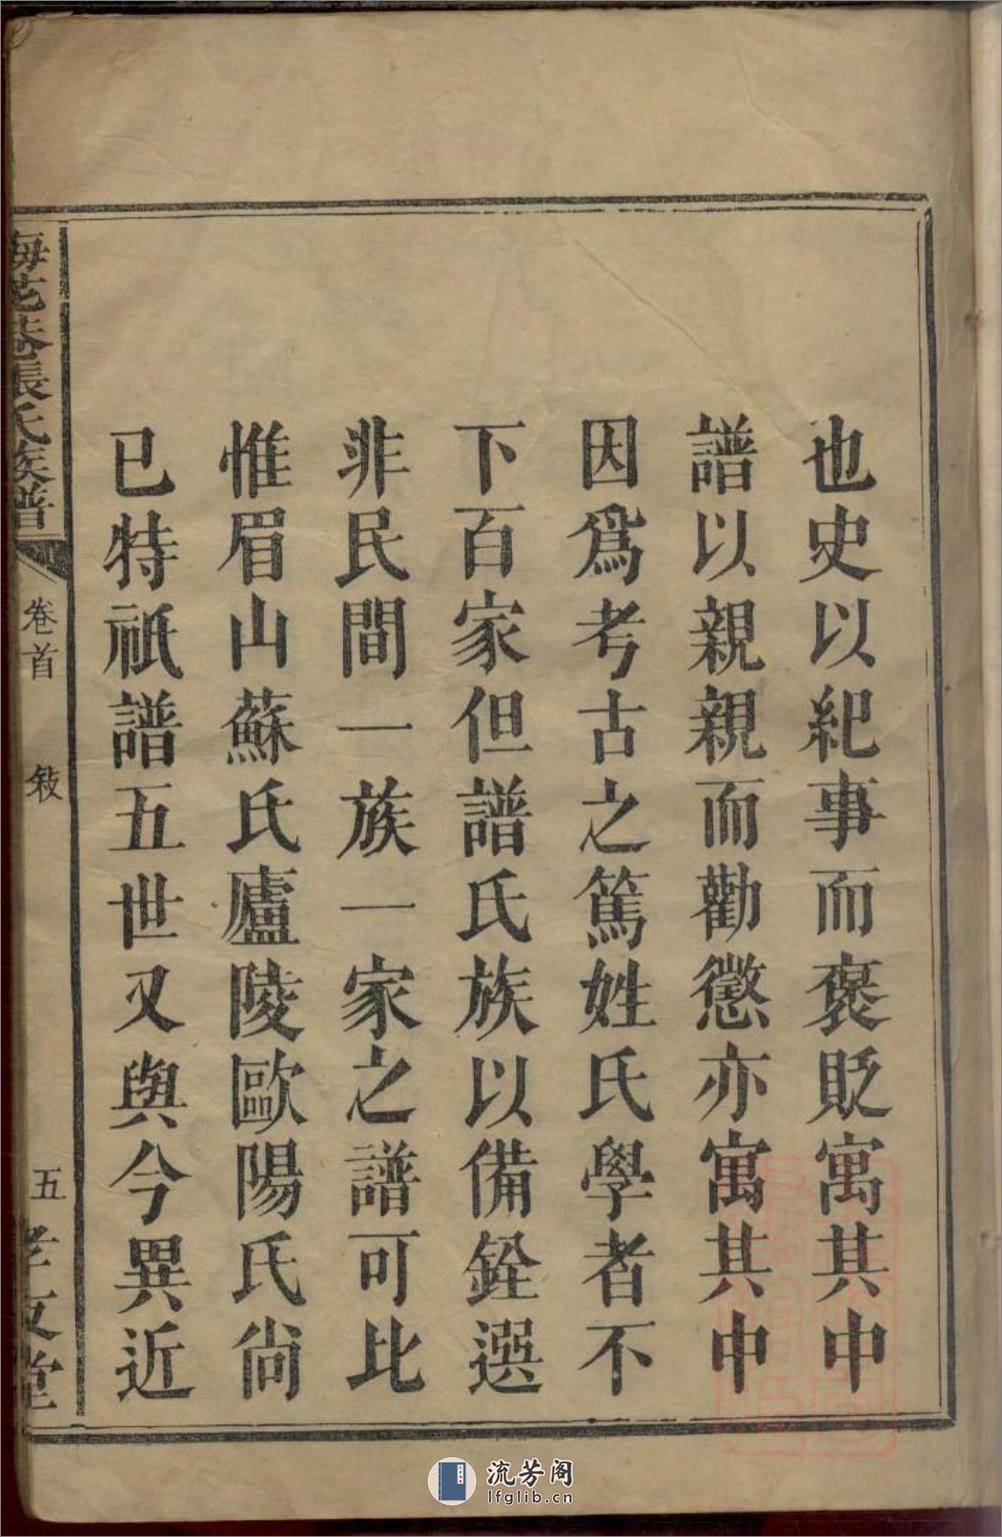 也史以紀事而褒貶寓其中
譜以親親而勸懲亦寓其中
因爲考古之篤姓氏學者不
下百家但譜氏族以備銓選
非民間一族一家之譜可比
惟眉山蘇氏廬陵歐陽氏尙
已特祇譜五世又與今異近
梅花巷張氏族譜
卷首
敍
五
孝友堂
流芳阁
lfglib.cn